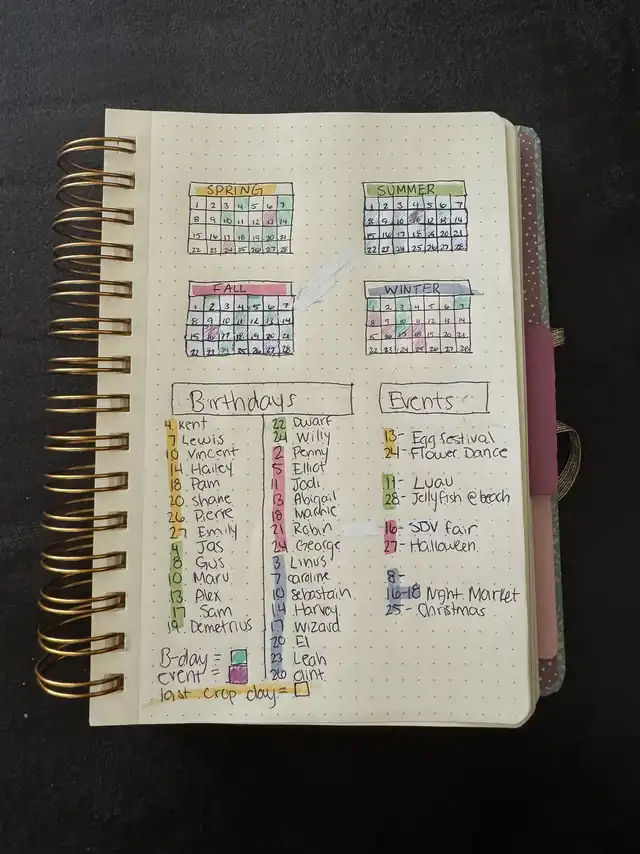 SPRING
1 2 3 4 5 6 7
8 9 10 11 12 13 14
15 16 17 18 19 20 21
22 23 24 25 26 27 28
SUMMER
1 2 3 4 5 6 7
8 9 10 11 12 13 14
15 16 17 18 19 20 21
22 23 24 25 26 27 28
FALL
1 2 3 4 5 6 7
8 9 10 11 12 13 14
15 16 17 18 19 20 21
22 23 24 25 26 27 28
WINTER
1 2 3 4 5 6 7
8 9 10 11 12 13 14
15 16 17 18 19 20 21
22 23 24 25 26 27 28
Birthdays
4 Kent
7 Lewis
10 Vincent
14 Hailey
18 Pam
20 Shane
26 Pierre
27 Emily
4 Jas
8 Gus
10 Maru
13 Alex
17 Sam
19 Demetrius
22 Dwarf
24 Willy
2 Penny
5 Elliot
11 Jodi
13 Abigail
18 Marnie
21 Robin
24 George
3 Linus
7 Caroline
10 Sebastain
14 Harvey
17 Wizard
20 El
23 Leah
26 Clint
B-day =
event =
last crop day =
Events
13- Egg festival
24- Flower Dance
11- Luau
28- Jellyfish @ beach
16- SDV fair
27- Halloween
8-
16-18 Night Market
25- Christmas